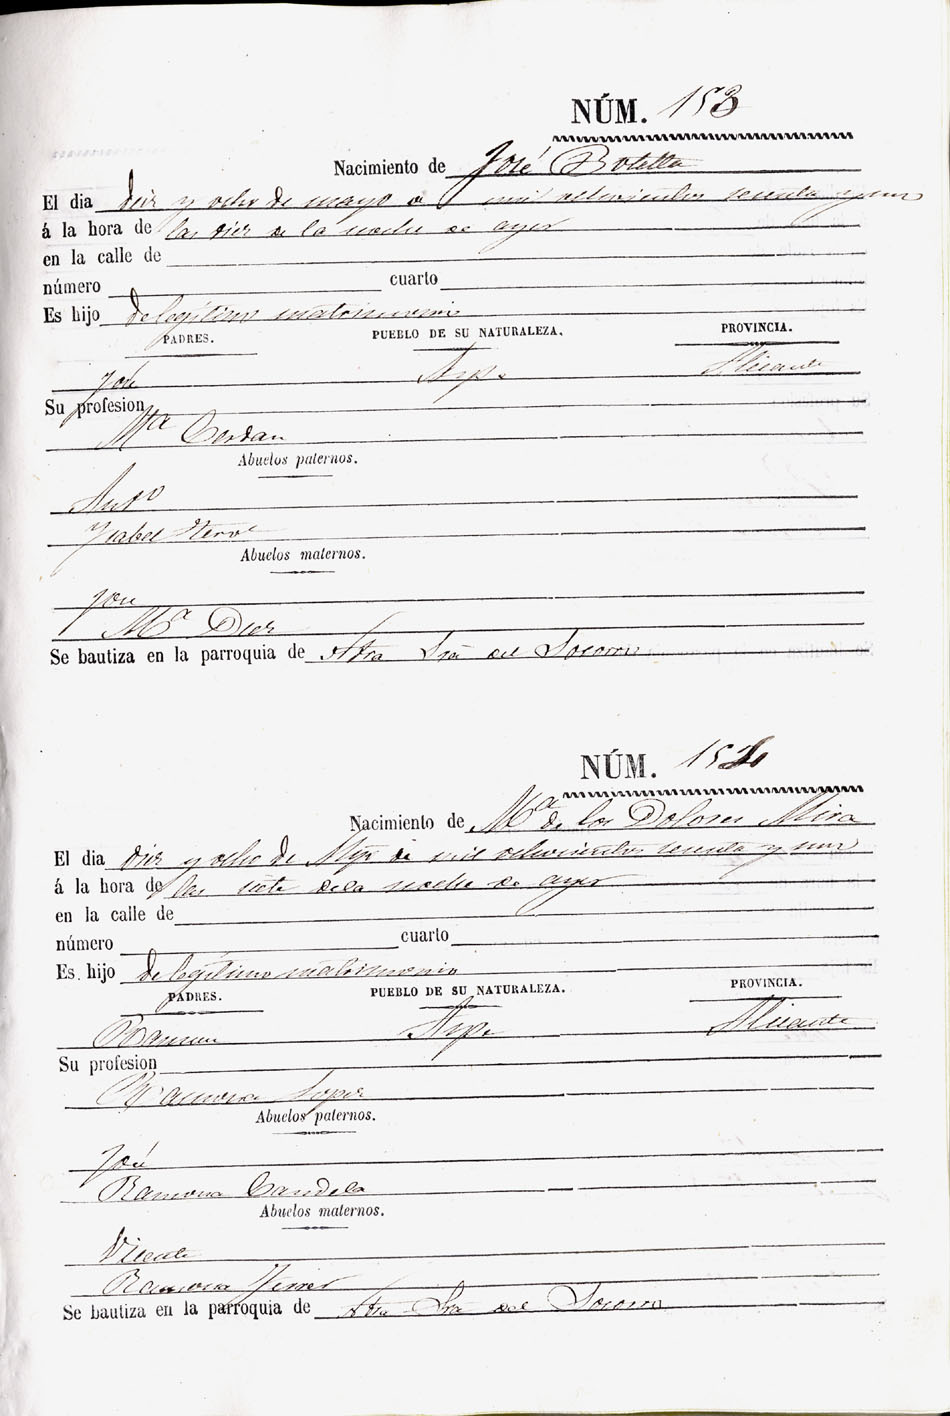 NÚM. 153
Nacimiento de José Botella
El dia diez y ocho de mayo de mil ochocientos sesenta y uno
á la hora de las diez de la noche de ayer
en la calle de
número cuarto
Es hijo de legítimo matrimonio
PADRES. PUEBLO DE SU NATURALEZA. PROVINCIA.
José Aspe Alicante
Su profesion
Mª Cerdan
Abuelos paternos.
Antº
Ysabel
Abuelos maternos.
José
Mª Diez
Se bautiza en la parroquia de Ntra Sra del Socorro
NÚM. 154
Nacimiento de Mª de los Dolores Mira
El dia diez y ocho de Mayo de mil ochocientos sesenta y uno
á la hora de las siete de la noche de ayer
en la calle de
número cuarto
Es hijo de legítimo matrimonio
PADRES. PUEBLO DE SU NATURALEZA. PROVINCIA.
Ramon Aspe Alicante
Su profesion
Ramona Lopez
Abuelos paternos.
José
Ramona Candela
Abuelos maternos.
Vicente
Ramona Ferrer
Se bautiza en la parroquia de Ntra Sra del Socorro